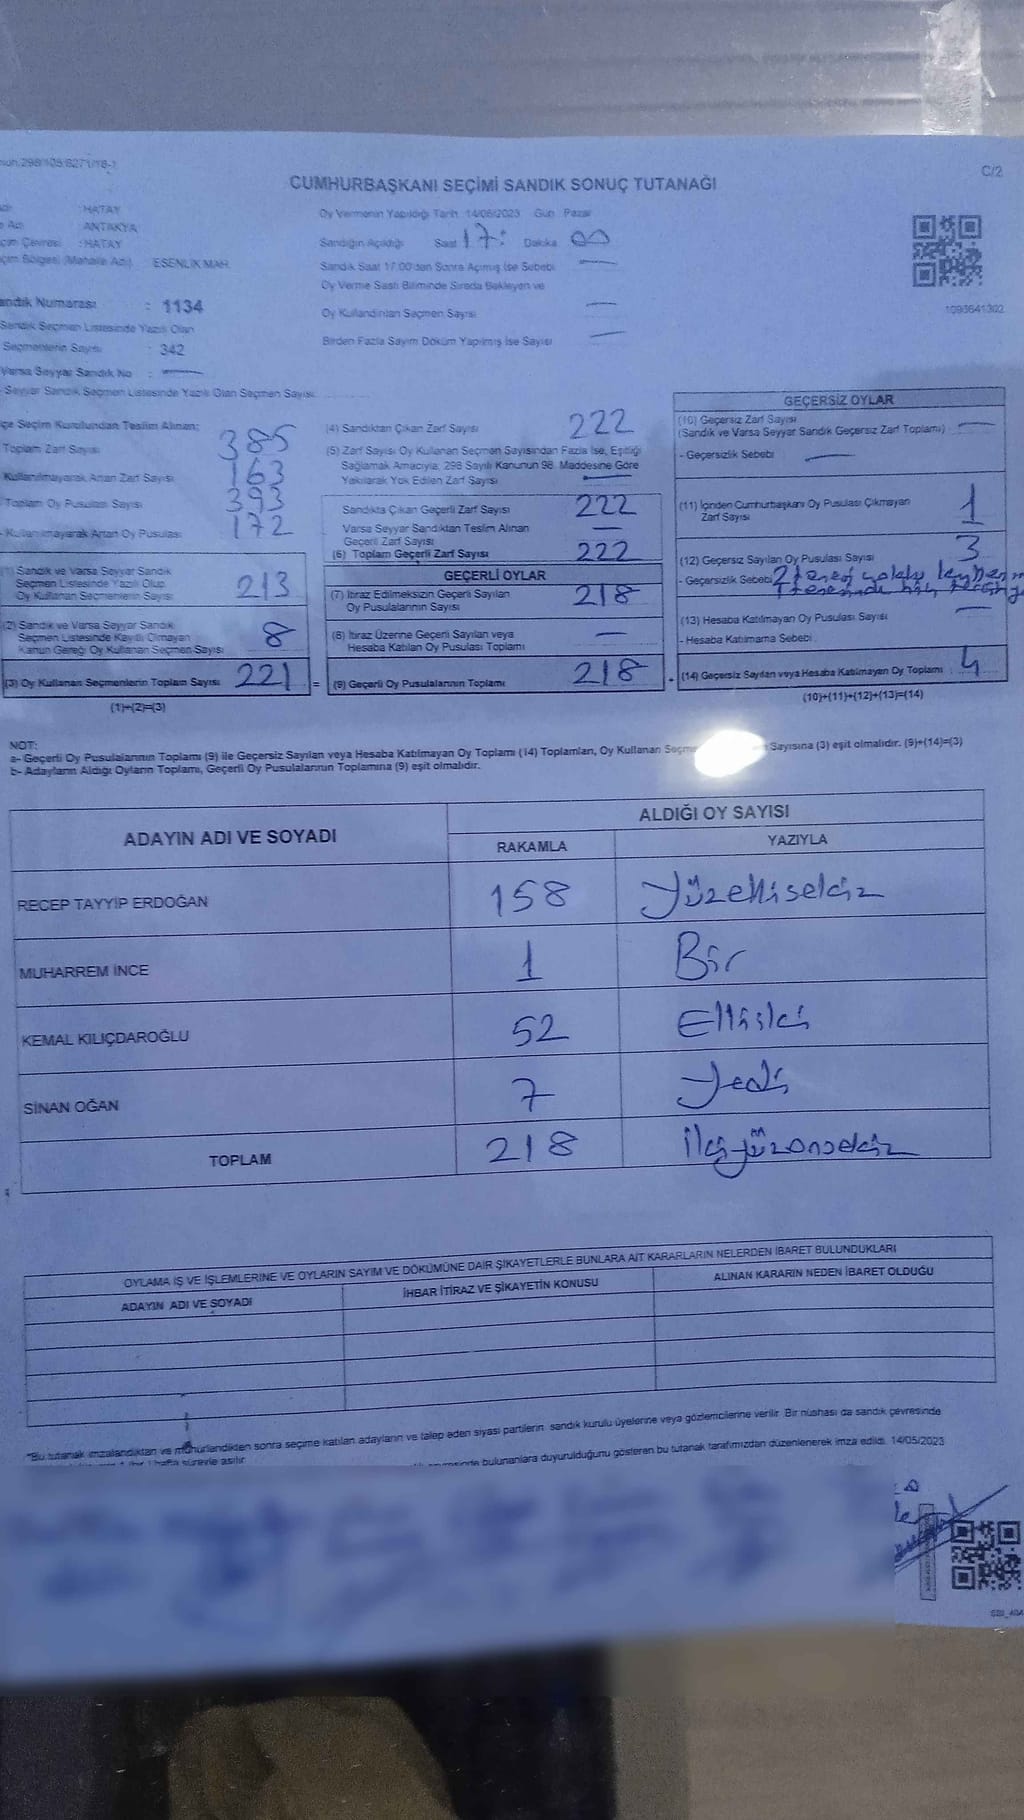 298/105/6271/18-1
C/2
CUMHURBAŞKANI SEÇİMİ SANDIK SONUÇ TUTANAĞI
: HATAY
Adı : ANTAKYA
Çevresi : HATAY
Bölgesi (Mahalle Adı) ESENLİK MAH.
Sandık Numarası : 1134
Sandık Seçmen Listesinde Yazılı Olan
Seçmenlerin Sayısı : 342
Varsa Seyyar Sandık No : —
Seyyar Sandık Seçmen Listesinde Yazılı Olan Seçmen Sayısı
Oy Vermenin Yapıldığı Tarih: 14/05/2023 Gün: Pazar
Sandığın Açıldığı Saat 17: Dakika 00
Sandık Saat 17.00'den Sonra Açılmış İse Sebebi —
Oy Verme Saati Bitiminde Sırada Bekleyen ve
Oy Kullandırılan Seçmen Sayısı —
Birden Fazla Sayım Döküm Yapılmış İse Sayısı —
1093641302
İlçe Seçim Kurulundan Teslim Alınan;
Toplam Zarf Sayısı 385
Kullanılmayarak Artan Zarf Sayısı 163
Toplam Oy Pusulası Sayısı 393
Kullanılmayarak Artan Oy Pusulası 172
(1) Sandık ve Varsa Seyyar Sandık
Seçmen Listesinde Yazılı Olup
Oy Kullanan Seçmenlerin Sayısı 213
(2) Sandık ve Varsa Seyyar Sandık
Seçmen Listesinde Kayıtlı Olmayan
Kanun Gereği Oy Kullanan Seçmen Sayısı 8
(3) Oy Kullanan Seçmenlerin Toplam Sayısı 221
(1)+(2)=(3)
(4) Sandıktan Çıkan Zarf Sayısı 222
(5) Zarf Sayısı Oy Kullanan Seçmen Sayısından Fazla İse, Eşitliği
Sağlamak Amacıyla, 298 Sayılı Kanunun 98. Maddesine Göre
Yakılarak Yok Edilen Zarf Sayısı —
Sandıkta Çıkan Geçerli Zarf Sayısı 222
Varsa Seyyar Sandıktan Teslim Alınan
Geçerli Zarf Sayısı —
(6) Toplam Geçerli Zarf Sayısı 222
GEÇERLİ OYLAR
(7) İtiraz Edilmeksizin Geçerli Sayılan
Oy Pusulalarının Sayısı 218
(8) İtiraz Üzerine Geçerli Sayılan veya
Hesaba Katılan Oy Pusulası Toplamı —
= (9) Geçerli Oy Pusulalarının Toplamı 218
GEÇERSİZ OYLAR
(10) Geçersiz Zarf Sayısı —
(Sandık ve Varsa Seyyar Sandık Geçersiz Zarf Toplamı)
- Geçersizlik Sebebi —
(11) İçinden Cumhurbaşkanı Oy Pusulası Çıkmayan
Zarf Sayısı 1
(12) Geçersiz Sayılan Oy Pusulası Sayısı 3
- Geçersizlik Sebebi 2
(13) Hesaba Katılmayan Oy Pusulası Sayısı —
- Hesaba Katılmama Sebebi
(14) Geçersiz Sayılan veya Hesaba Katılmayan Oy Toplamı 4
(10)+(11)+(12)+(13)=(14)
NOT:
a- Geçerli Oy Pusulalarının Toplamı (9) ile Geçersiz Sayılan veya Hesaba Katılmayan Oy Toplamı (14) Toplamları, Oy Kullanan Sayısına (3) eşit olmalıdır. (9)+(14)=(3)
b- Adayların Aldığı Oyların Toplamı, Geçerli Oy Pusulalarının Toplamına (9) eşit olmalıdır.
ADAYIN ADI VE SOYADI ALDIĞI OY SAYISI
RAKAMLA YAZIYLA
RECEP TAYYİP ERDOĞAN 158 Yüzellisekiz
MUHARREM İNCE 1 Bir
KEMAL KILIÇDAROĞLU 52 Elliiki
SİNAN OĞAN 7 Yedi
TOPLAM 218 İkiyüzonsekiz
OYLAMA İŞ VE İŞLEMLERİNE VE OYLARIN SAYIM VE DÖKÜMÜNE DAİR ŞİKAYETLERLE BUNLARA AİT KARARLARIN NELERDEN İBARET BULUNDUKLARI
ADAYIN ADI VE SOYADI İHBAR İTİRAZ VE ŞİKAYETİN KONUSU ALINAN KARARIN NEDEN İBARET OLDUĞU
*Bu tutanak imzalandıktan ve mühürlendikten sonra seçime katılan adayların ve talep eden siyasi partilerin sandık kurulu üyelerine veya gözlemcilerine verilir. Bir nüshası da sandık çevresinde
1 hafta süreyle asılır.
bulunanlara duyurulduğunu gösteren bu tutanak tarafımızdan düzenlenerek imza edildi. 14/05/2023